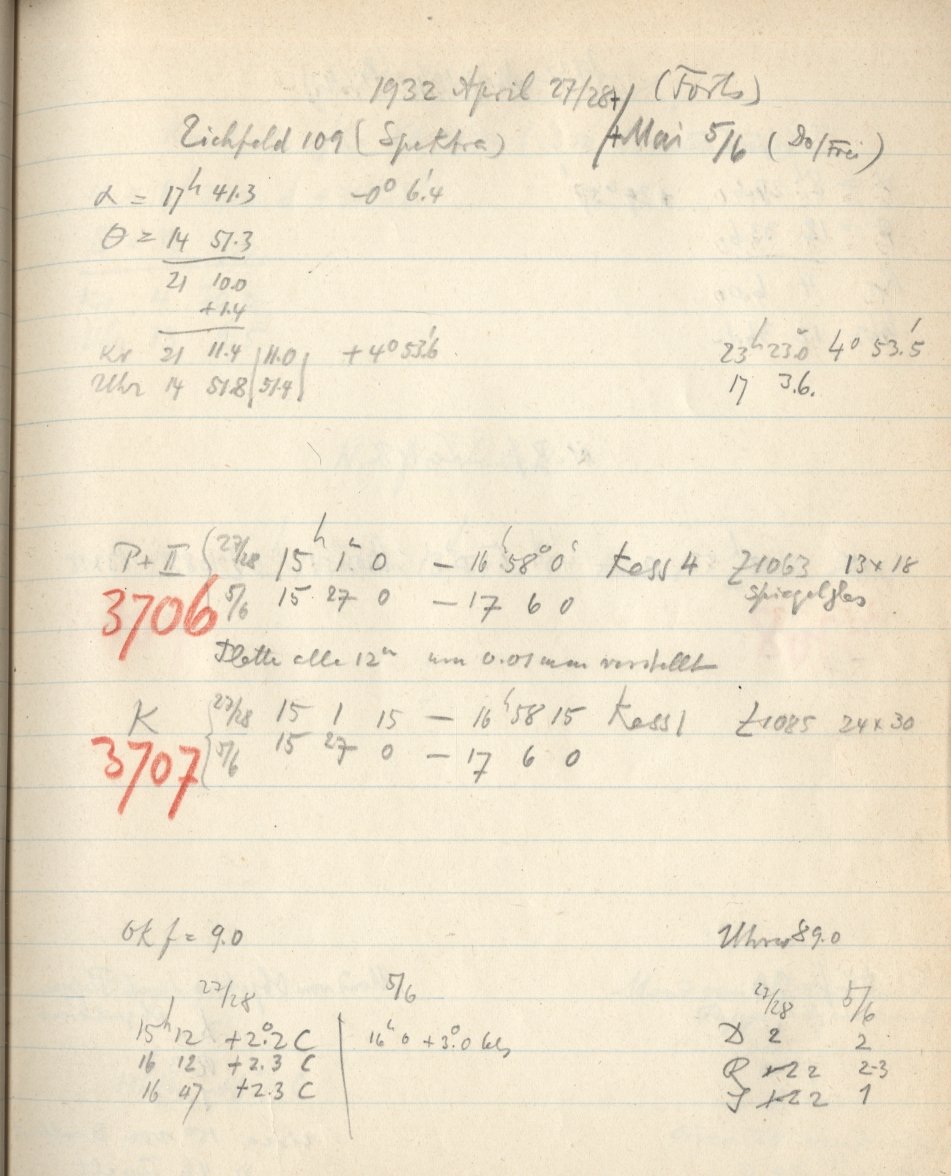 1932 April 27/28 + (Forts)
Eichfeld 109 (Spektra) + Mai 5/6 (Do/Frei)
α = 17h 41.3 -0° 6.'4
θ = 14 51.3
21 10.0
+1.4
Kr 21 11.4 | 11.0 | +4° 53.'6 23h 23.0 4° 53.'5
Uhr 14 51.8 | 51.4 | 17 3.6.
P+II { 27/28 15h 1m 0 — 16h 58 0 Kass 4 Z1063 13×18
3706 5/6 15 27 0 — 17 6 0 Spiegelglas
Platte alle 12m um 0.01 mm verstellt
K { 27/28 15 1 15 — 16h 58 15 Kass 1 Z1085 24×30
3707 5/6 15 27 0 — 17 6 0
Ok f = 9.0 89.0
27/28 5/6 27/28 5/6
15h 12 +2.°2 C 16h 0 +3.°0 D 2 2
16 12 +2.3 C R 2 2-3
16 47 +2.3 C J 2 1